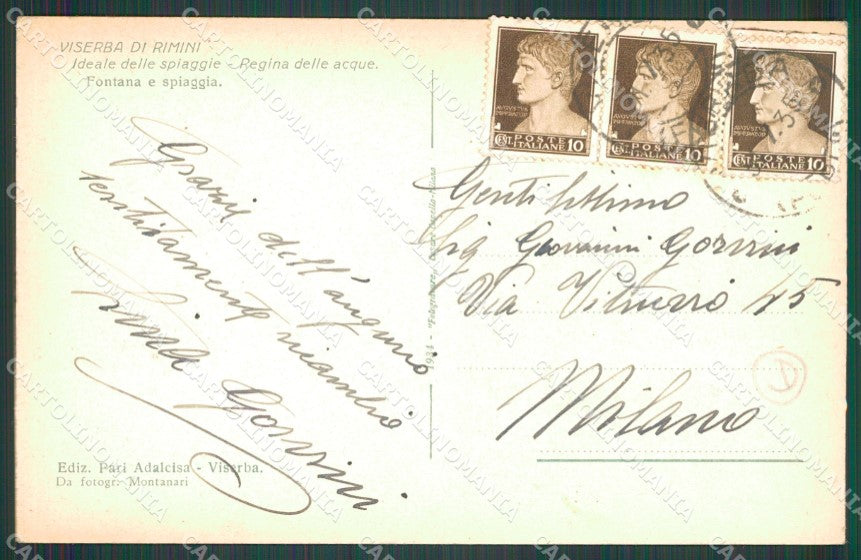 VISERBA DI RIMINI
Ideale delle spiaggie - Regina delle acque.
Fontana e spiaggia.
Grazie dell'augurio
sentitamente ricambio
Gorrini
Ediz. Pari Adalcisa - Viserba.
Da fotogr. Montanari
1934
AUGVSTVS
IMPERATOR
POSTE
CENT. ITALIANE 10
AUGVSTVS
IMPERATOR
POSTE
CENT. ITALIANE 10
AUGVSTVS
IMPERATOR
POSTE
CENT. ITALIANE 10
Gentilissimo
Sig Giovanni Gorrini
Via Vitruvio 45
Milano
CARTOLINOMANIA